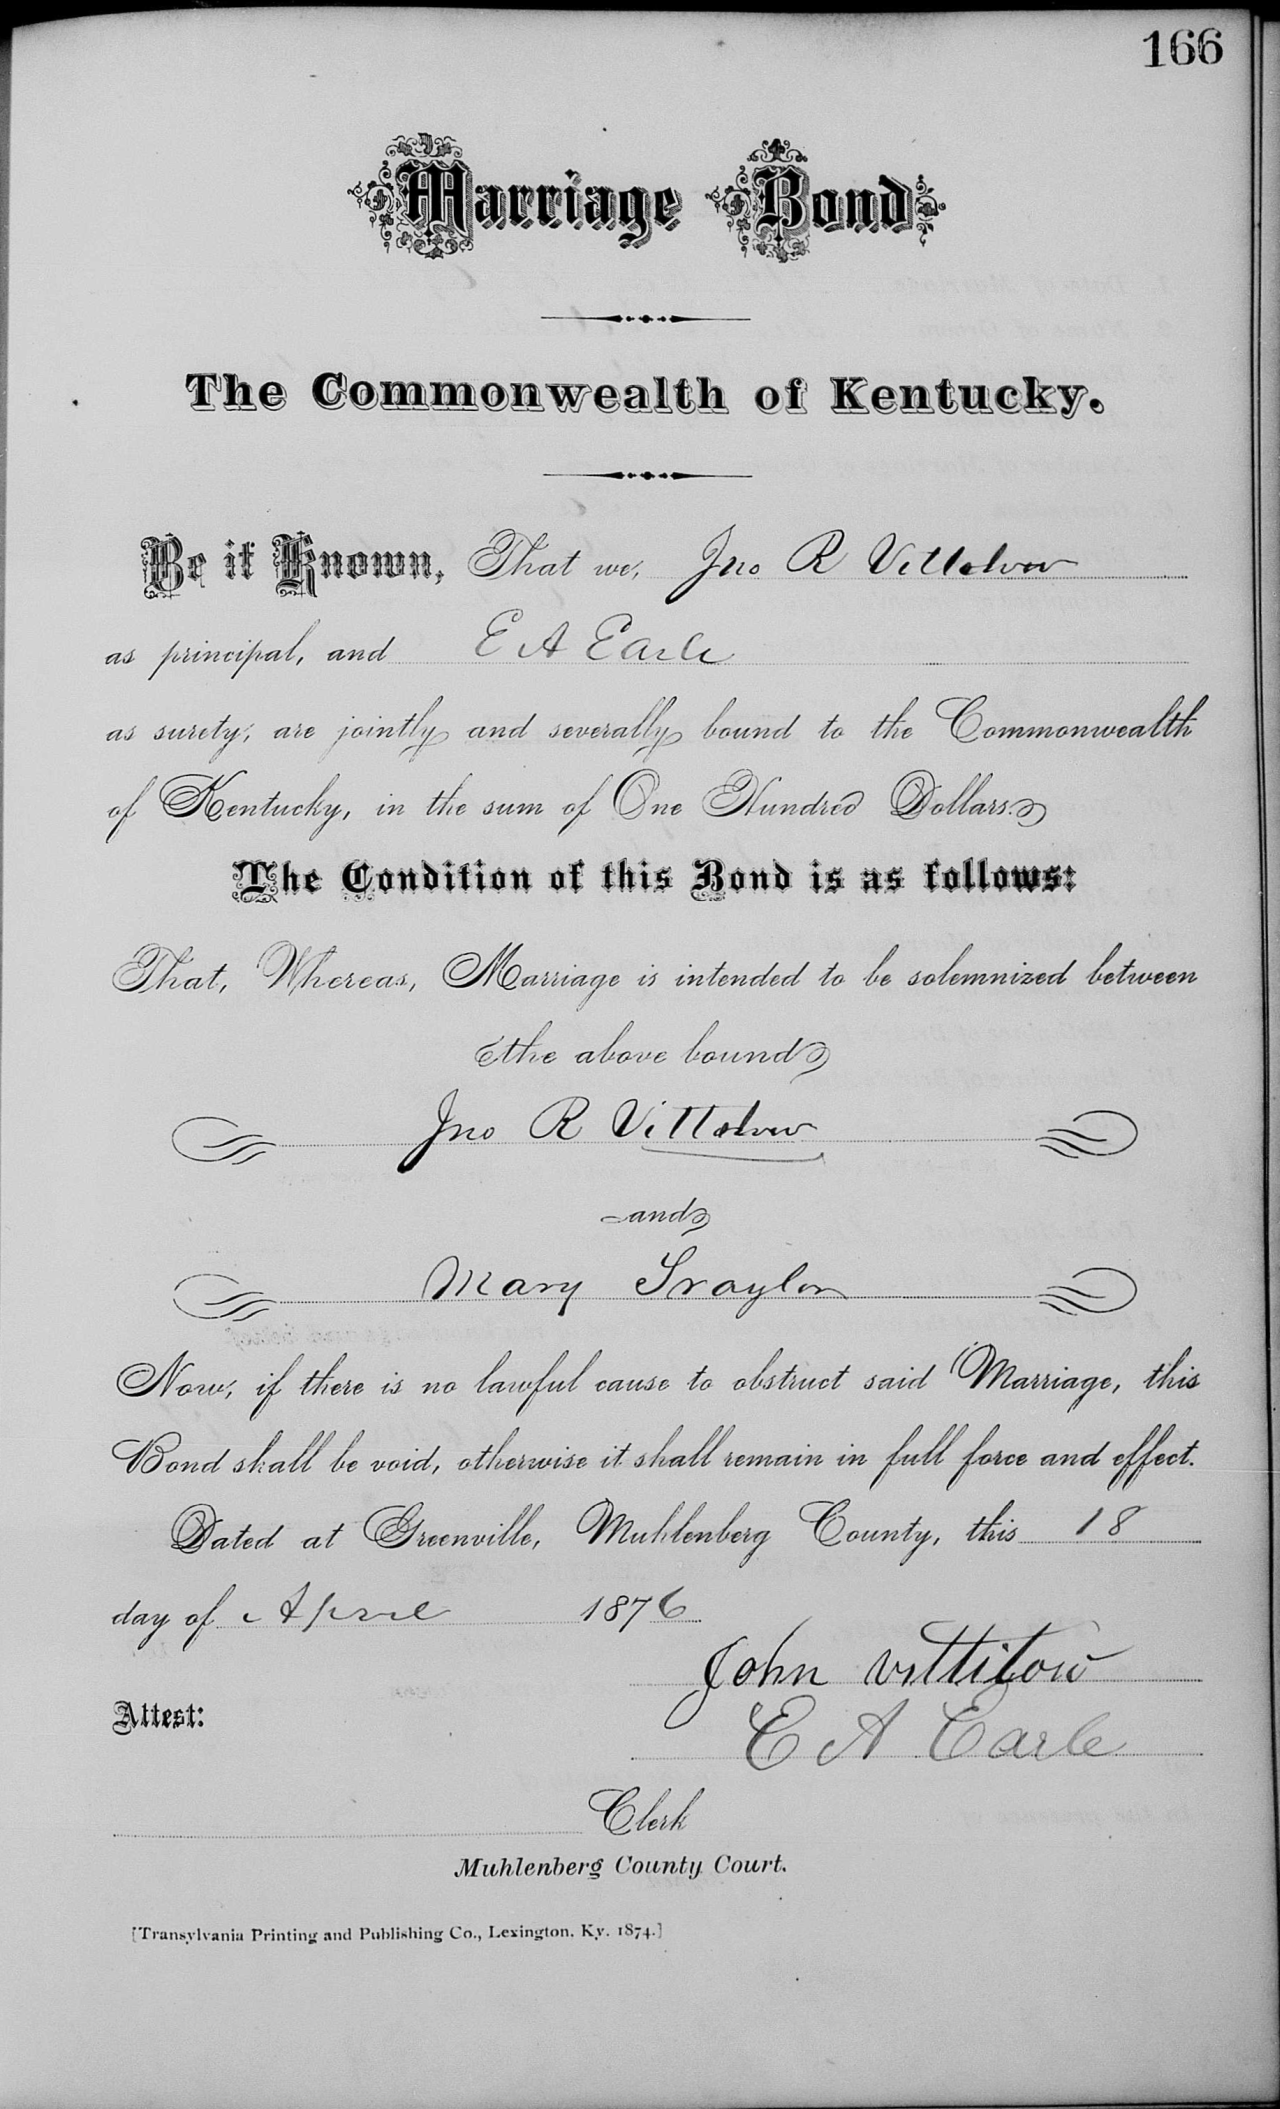 166
Marriage Bond
The Commonwealth of Kentucky.
Be it Known, That we, Jno R Vittetow
as principal, and E A Earle
as surety, are jointly and severally bound to the Commonwealth
of Kentucky, in the sum of One Hundred Dollars.
The Condition of this Bond is as follows:
That, Whereas, Marriage is intended to be solemnized between
the above bound
Jno R Vittetow
and
Mary Traylor
Now, if there is no lawful cause to obstruct said Marriage, this
Bond shall be void, otherwise it shall remain in full force and effect.
Dated at Greenville, Muhlenberg County, this 18
day of April 1876
John Vittitow
Attest:
E A Earle
Clerk
Muhlenberg County Court.
[Transylvania Printing and Publishing Co., Lexington, Ky. 1874.]